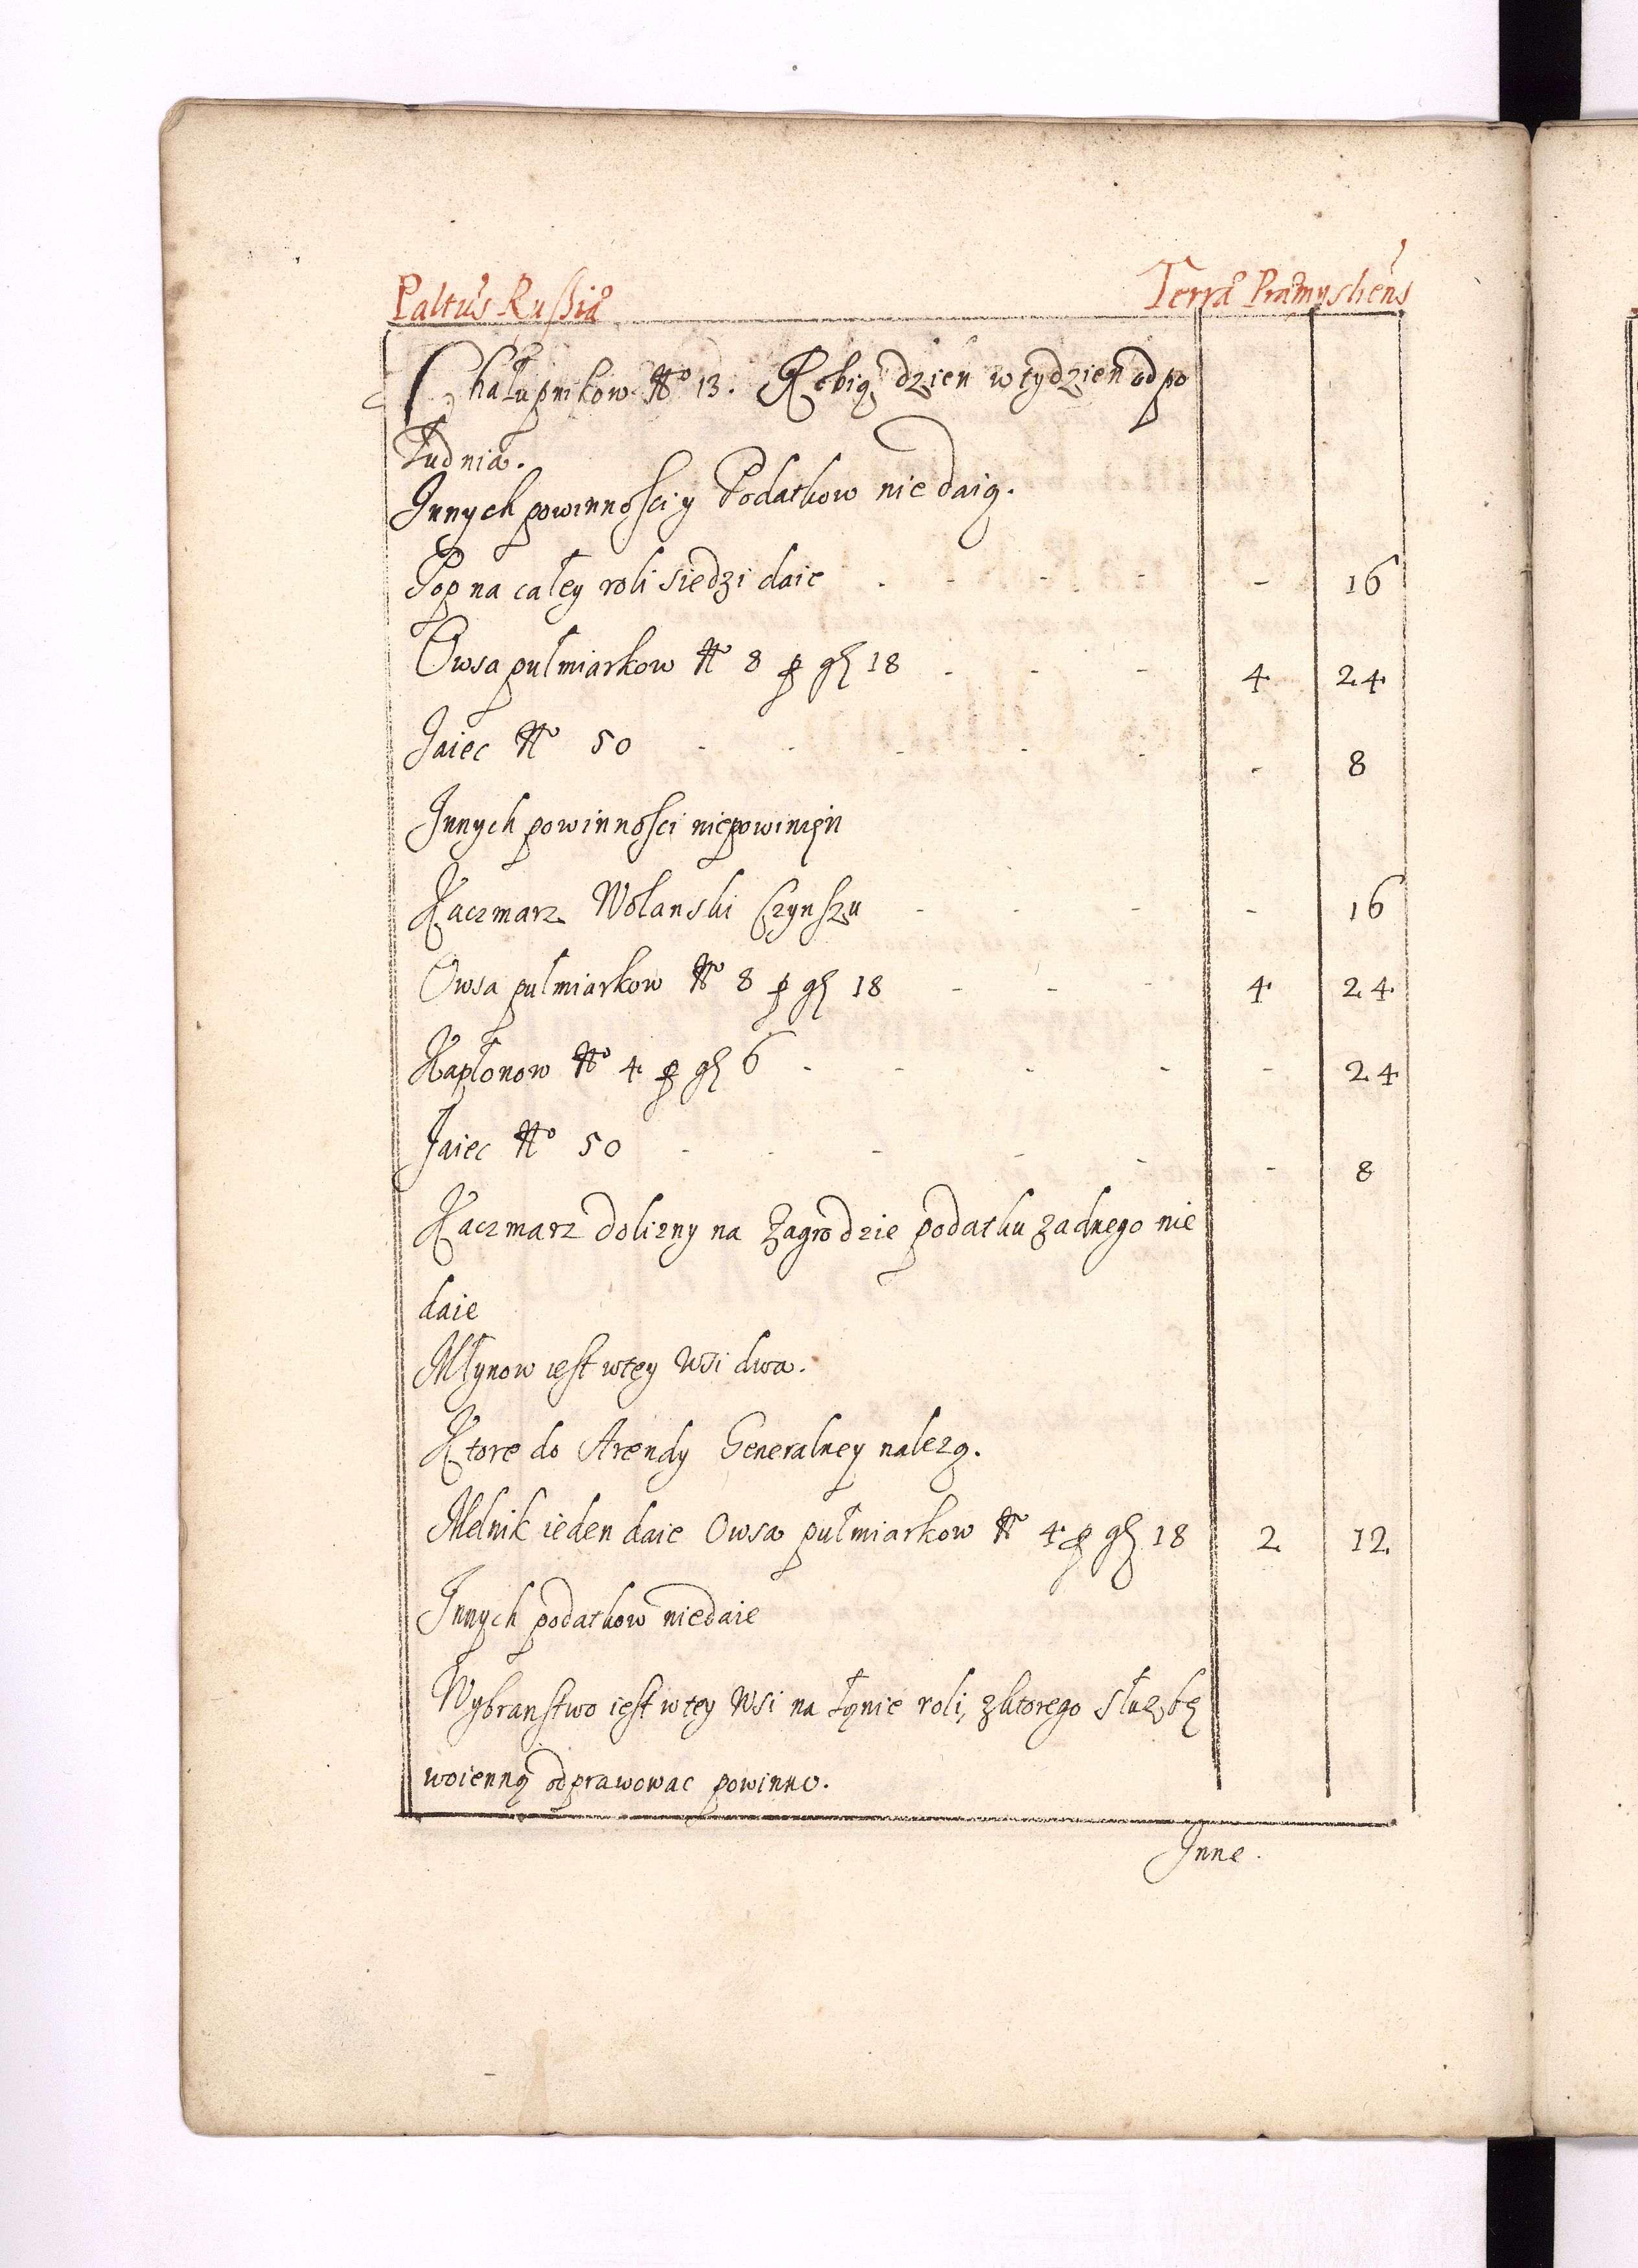 Paltus Russiæ Terræ Præmysliens
Chałupnikow No 13. Robią dzień w tydzień od po
łudnia.
Innych powinności y Podatkow nie daią.
Pop na całey roli siedzi daie - - - - - 16
Owsa pułmiarkow No 8 p gr 18 - - - 4 24
Jaiec No 50 - - - - - - 8
Innych powinności niepowinien
Kaczmarz Wolanski Czynszu - - - - 16
Owsa pułmiarkow No 8 p gr 18 - - - 4 24
Kapłonow No 4 p gr 6 - - - - - 24
Jaiec No 50 - - - - - - 8
Kaczmarz dolizny na Zagrodzie podatku zadnego nie
daie
Młynow iest wtey Wsi dwa.
Ktore do Arendy Generalney nalezą.
Melnik ieden daie Owsa pułmiarkow No 4 p gr 18 2 12
Innych podatkow niedaie
Wybranstwo iest wtey Wsi na łanie roli, zktorego słuzbę
woienną odprawowac powinno.
Inne.